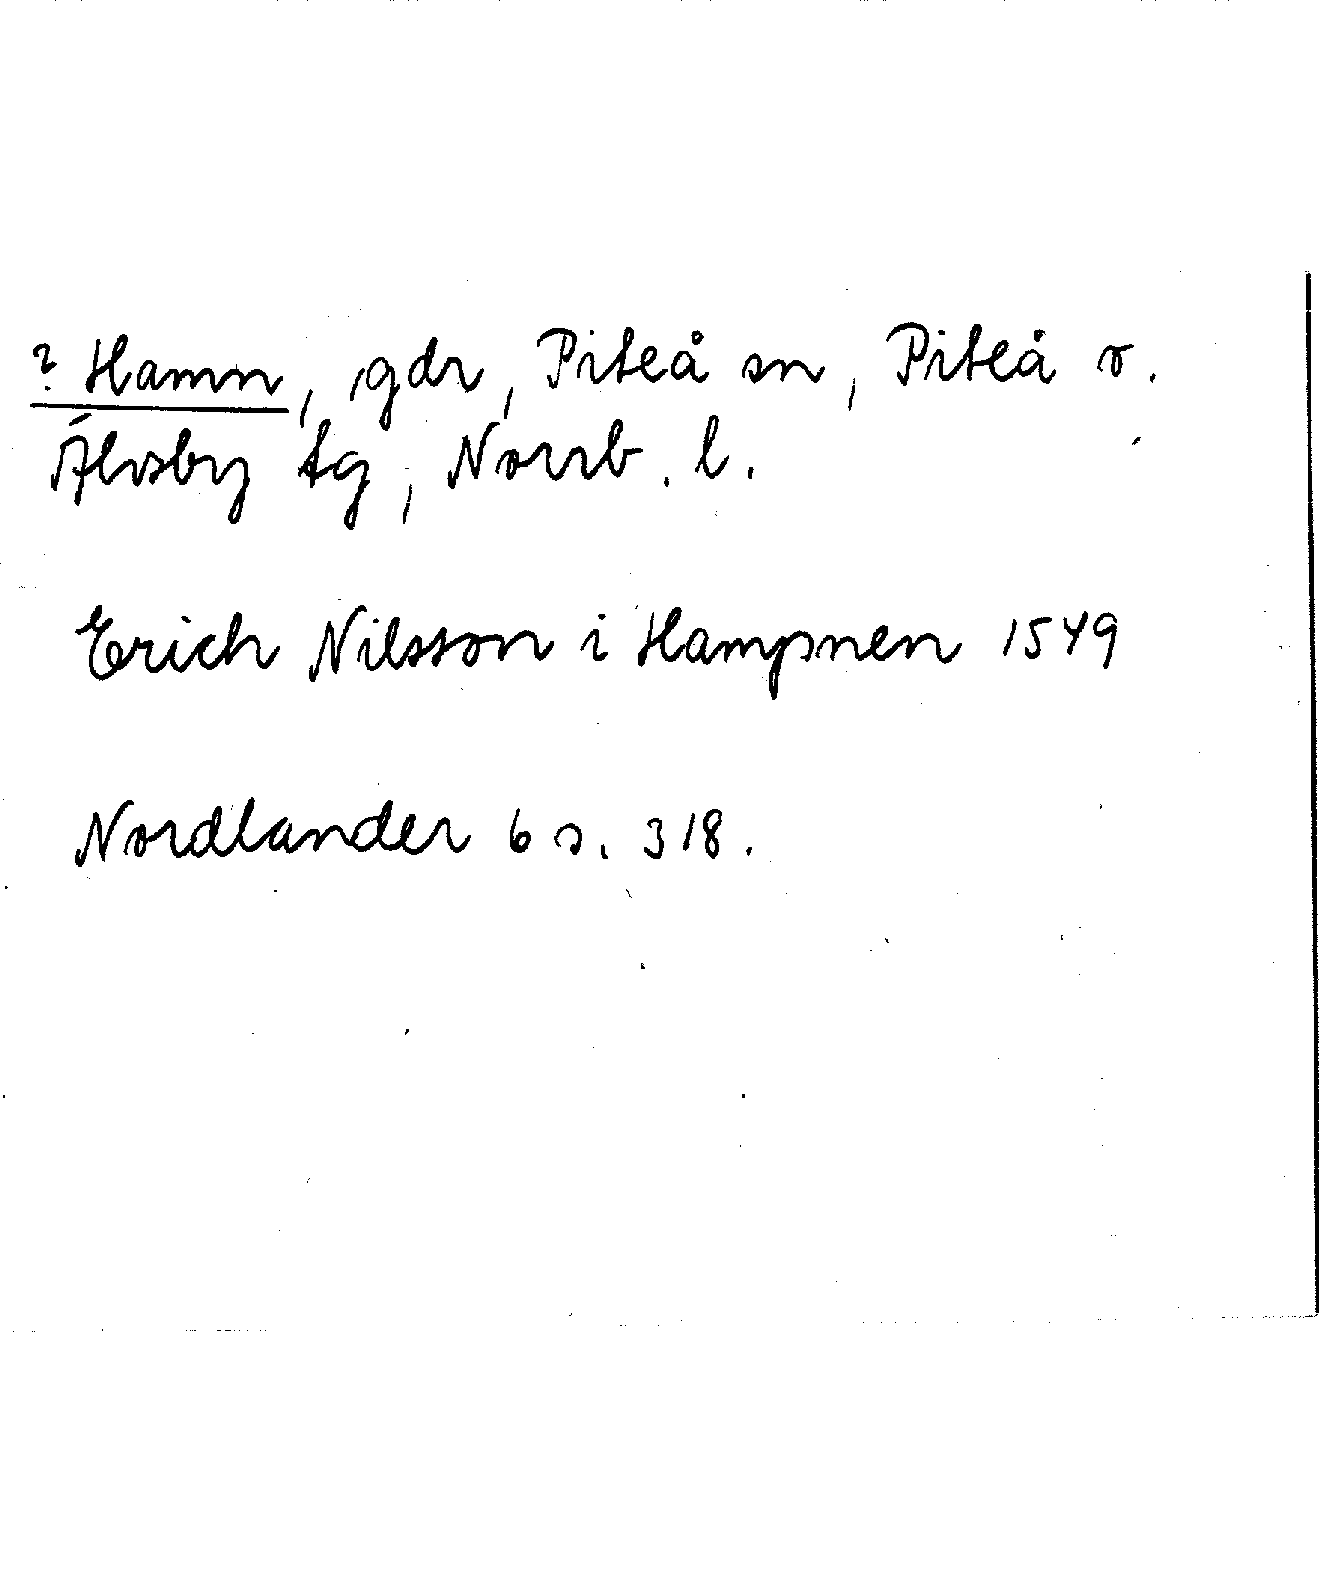 ? Hamn, gdr, Piteå sn, Piteå o.
Älvsby tg, Norrb. l.
Erich Nilsson i Hampnen 1549
Nordlander 6 s. 318.